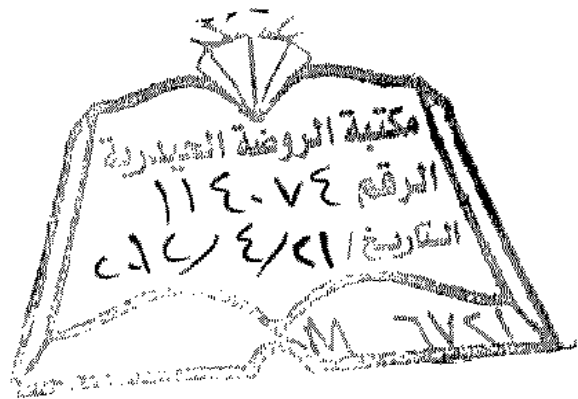 مكتبة الروضة الحيدرية
الرقم ١١٤٠٧٤
التاريخ / ٢١/٤/